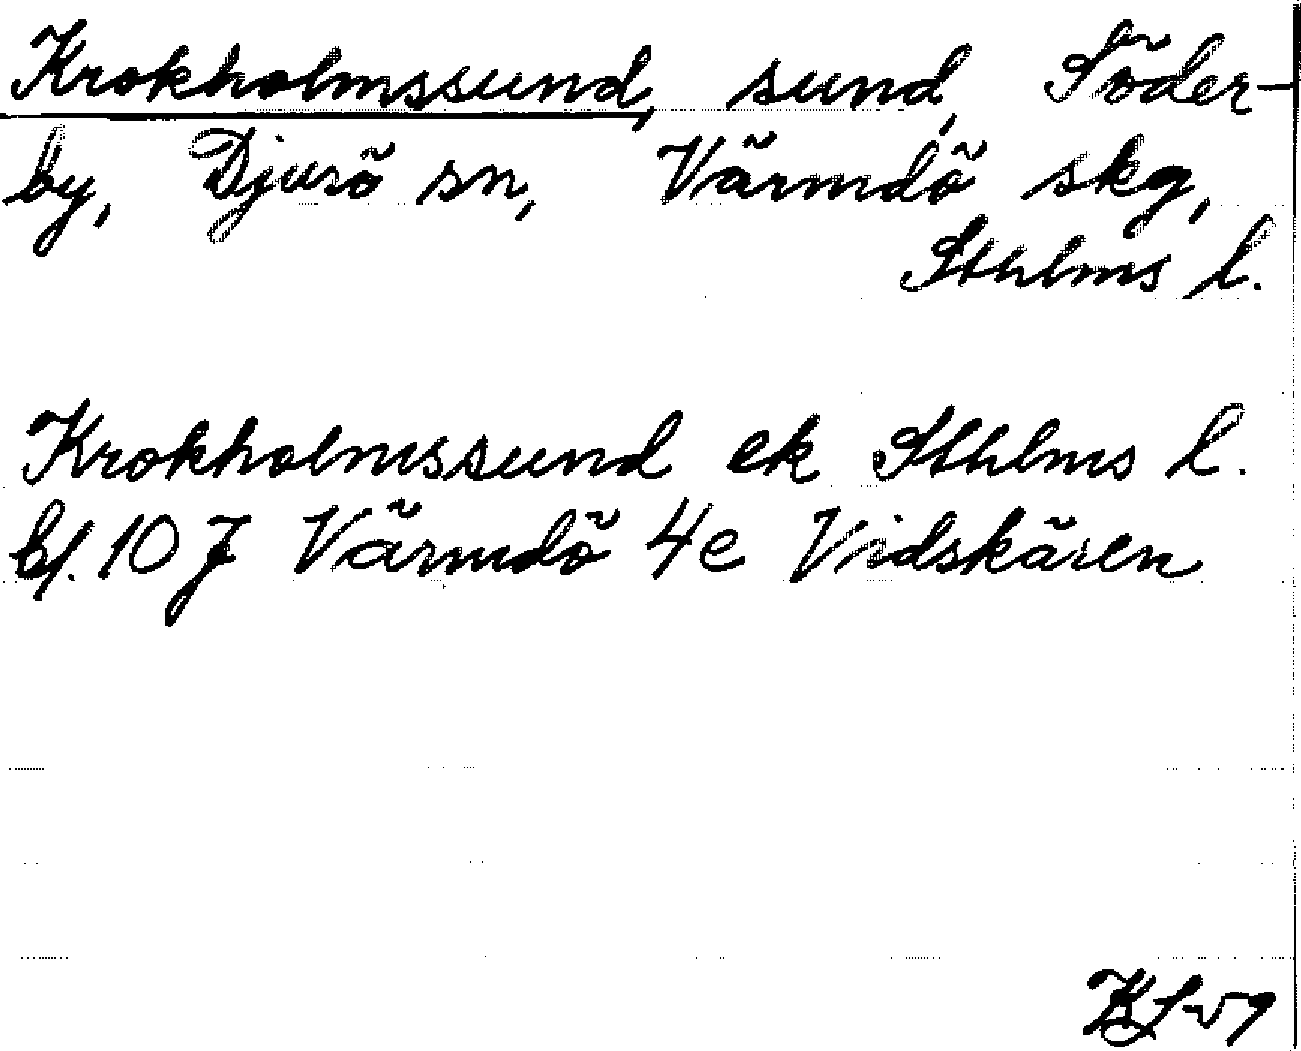 Krokholmssund, sund, Söder-
by, Djurö sn, Värmdö skg,
Sthlms l.
Krokholmssund ek Sthlms l.
bl. 10 J Värmdö 4e Vidskären